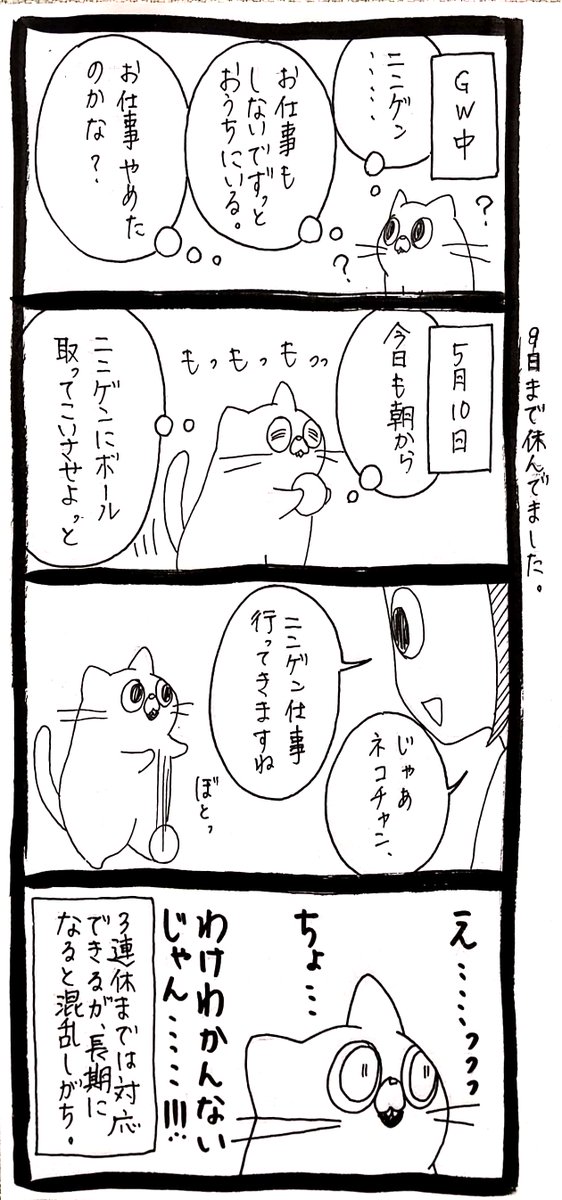 GW中
ニンゲン
‥‥‥
お仕事も
しないでずっと
おうちにいる。
お仕事やめた
のかな？
?
?
9日まで休んでました。
5月10日
今日も朝から
もっもっもっっ
ニンゲンにボール
取ってこいさせよっと
じゃあ
ネコチャン、
ニンゲン仕事
行ってきますね
ぼとっ
え‥‥‥、っっっ
ちょ…
わけわかんない
じゃん‥‥‥!!!
3連休までは対応
できるが、長期に
なると混乱しがち。